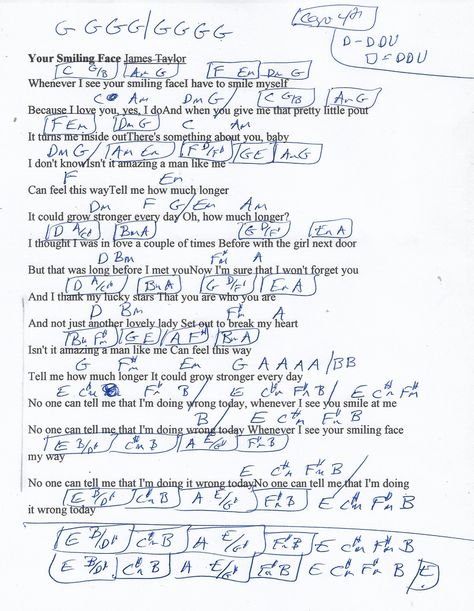 G GGGG/GGGG
Capo 4th
D-DDU
D=DDU
Your Smiling Face James Taylor
C G/B Am G F Em Dm G
Whenever I see your smiling faceI have to smile myself
C Am Dm G / C G/B Am G
Because I love you, yes, I doAnd when you give me that pretty little pout
F Em Dm G C Am
It turns me inside outThere's something about you, baby
Dm G / Am Em F D/F# G E Am G
I don't knowIsn't it amazing a man like me
F Em
Can feel this wayTell me how much longer
Dm F G/Em Am
It could grow stronger every day Oh, how much longer?
D A/C# Bm A G D/F# Em A
I thought I was in love a couple of times Before with the girl next door
D Bm F#m A
But that was long before I met youNow I'm sure that I won't forget you
D A/C# Bm A G D/F# Em A
And I thank my lucky stars That you are who you are
D Bm F#m A
And not just another lovely lady Set out to break my heart
Bm F#m G E A F# Bm A
Isn't it amazing a man like me Can feel this way
G F#m Em G A A A A / B B
Tell me how much longer It could grow stronger every day
E C#m F#m B E C#m F#m B / E C#m F#m
No one can tell me that I'm doing wrong today, whenever I see you smile at me
B / E C#m F#m B
No one can tell me that I'm doing wrong today Whenever I see your smiling face
E B/D# C#m B A E/G# F#m B
my way
E C#m F#m B /
No one can tell me that I'm doing it wrong todayNo one can tell me that I'm doing
E B/D# C#m B A E/G# F#m B E C#m F#m B
it wrong today
E B/D# C#m B A E/G# F#m B E C#m F#m B
E B/D# C#m B A E/G# F#m B E C#m F#m B / E